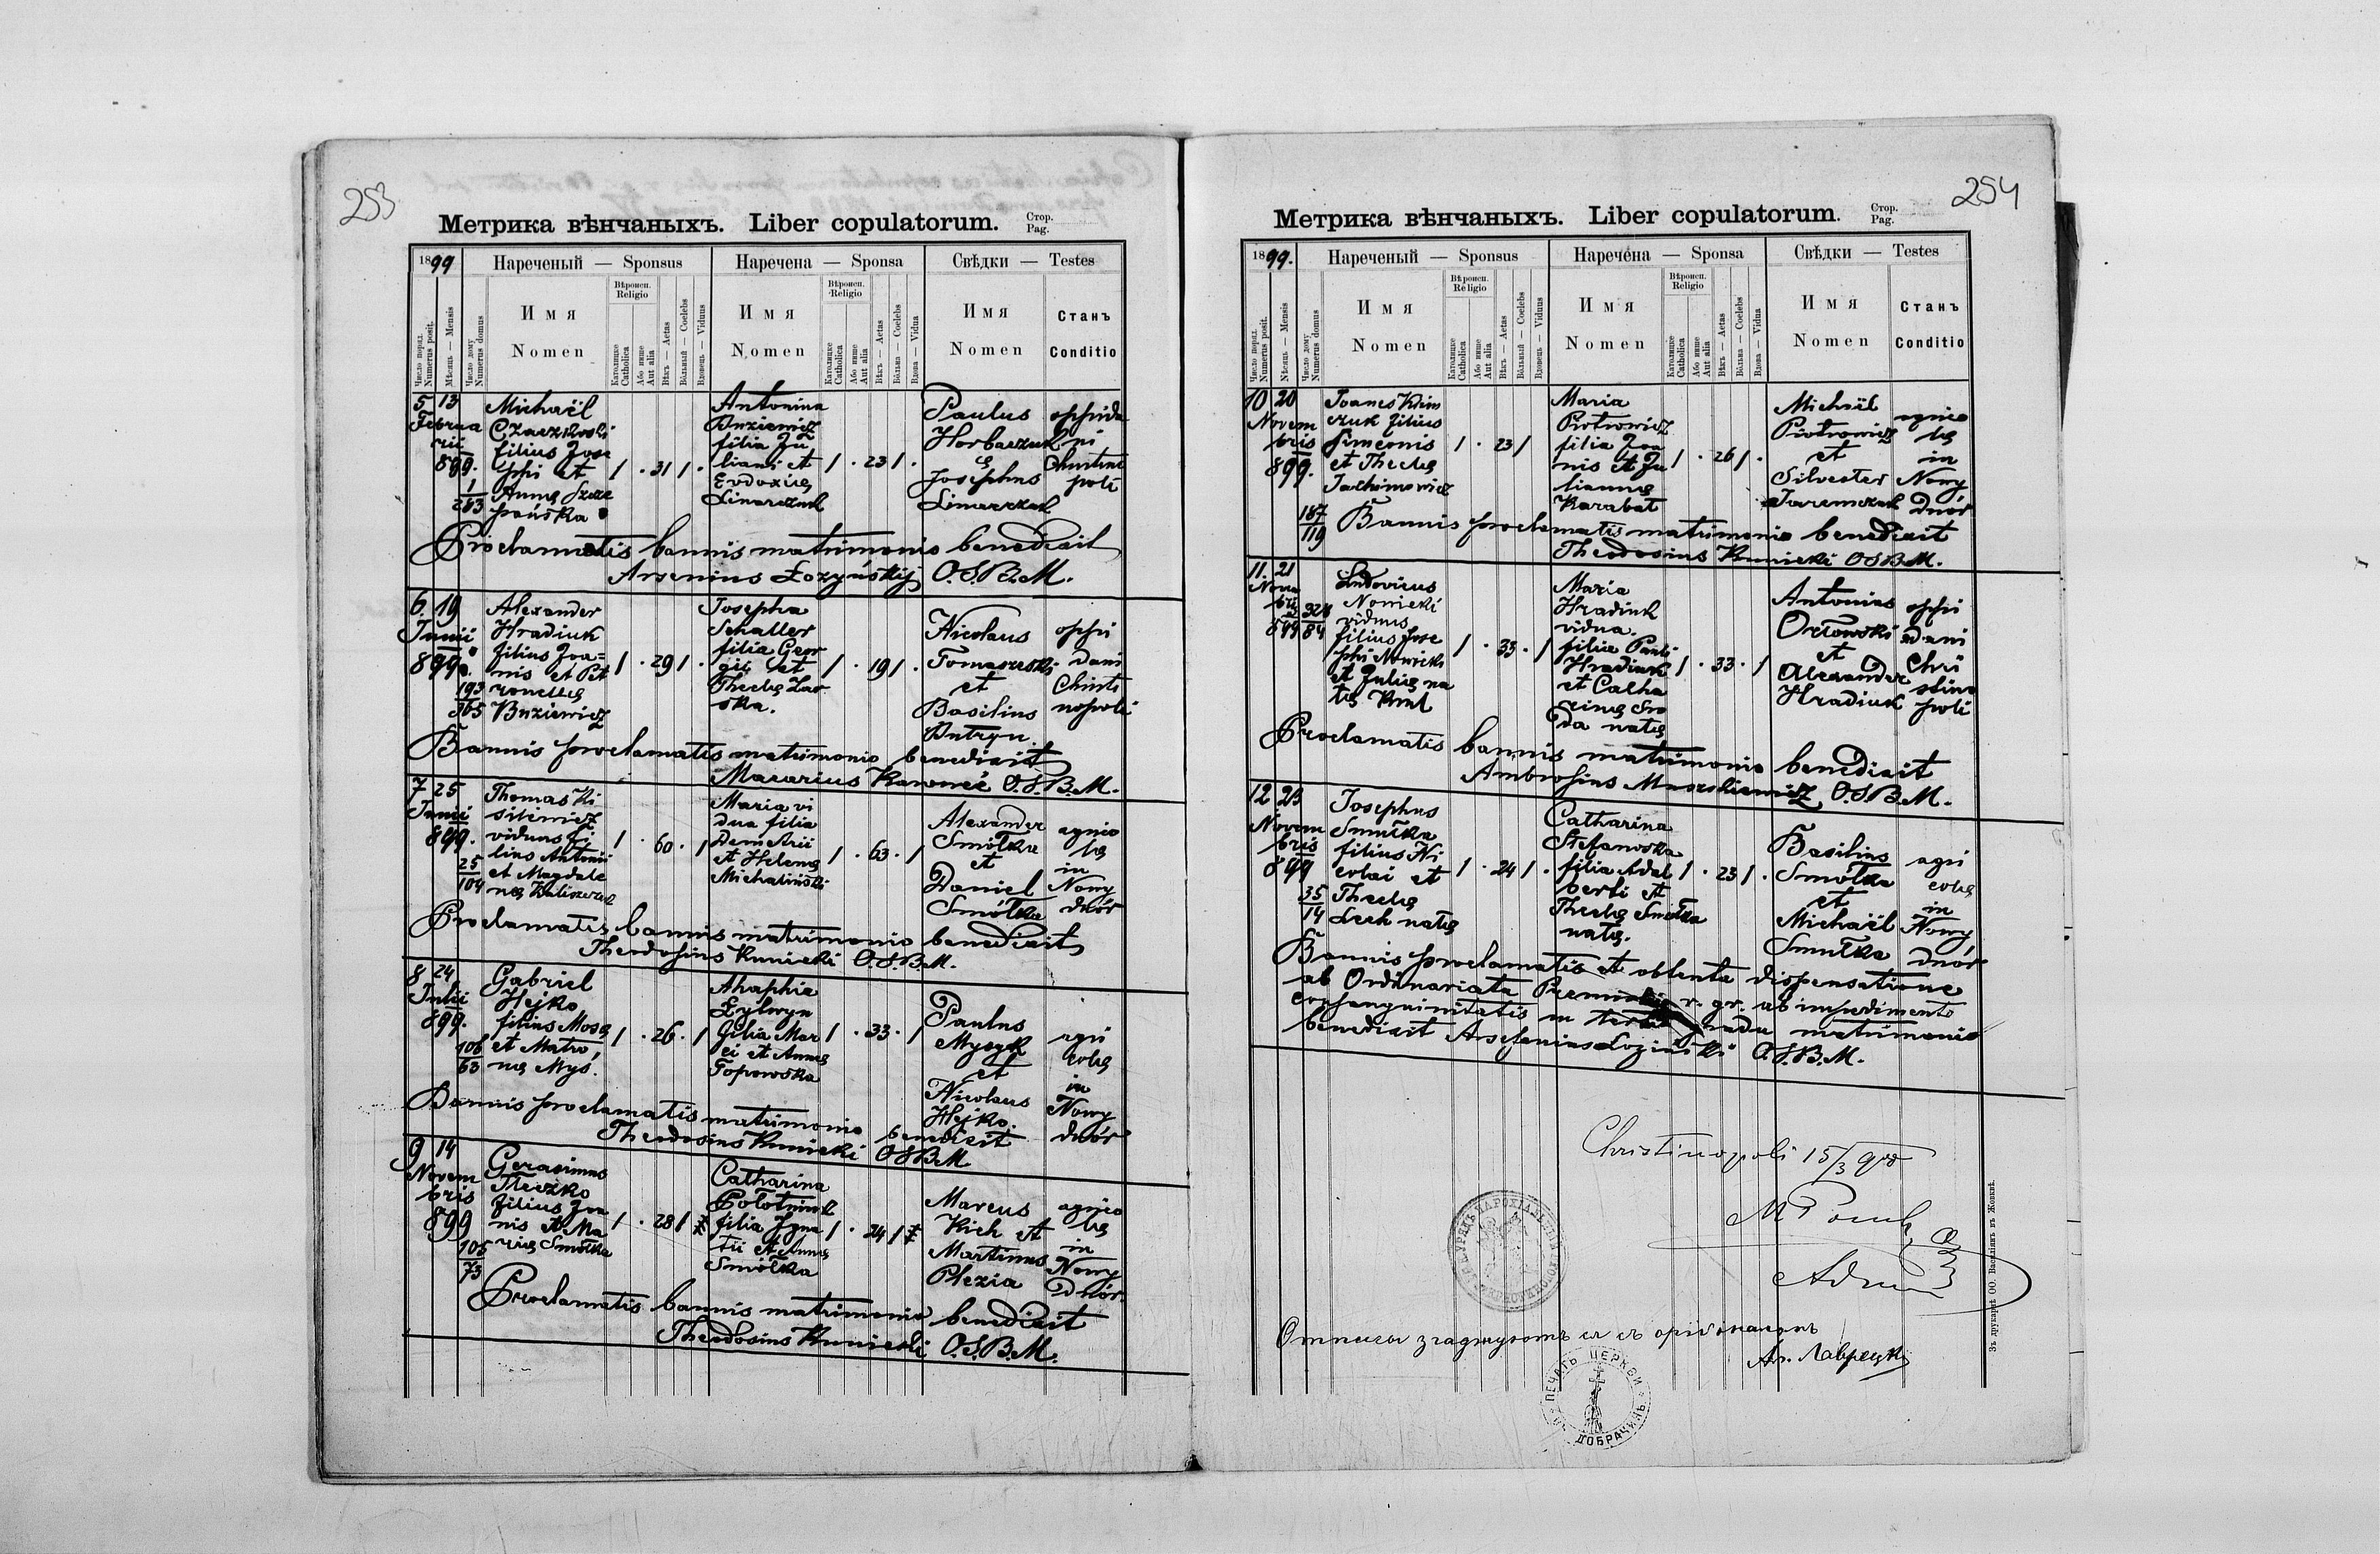 253
Метрика вѣнчаныхъ. Liber copulatorum. Стор. Pag.
1899
Нареченый — Sponsus
Наречена — Sponsa
Свѣдки — Testes
Число поряд. Numerus posit.
Мѣсяць — Mensis
Число дому Numerus domus
Имя Nomen
Вѣроисп. Religio
Католицке Catholica
Або инше Aut alia
Вѣкъ — Aetas
Вольный — Coelebs
Вдовець — Viduus
Имя Nomen
Вѣроисп. Religio
Католицке Catholica
Або инше Aut alia
Вѣкъ — Aetas
Вôльна — Coelebs
Вдова — Vidua
Имя Nomen
Станъ Conditio
5 13
Februa
rii
899.
1
283
Michaël
filius Jose
phi et
Annę Szcze
pańska
1 . 31 1 .
Antonina
Buziewicz
filia Ju
liani et
Eudoxię
Linarczuk
1 . 23 1 .
Paulus
Horbaczuk
&
Josephus
Linarczuk
oppida
ni
Christino
poli
Proclamatis bannis matrimonio benedixit
Arsenius Łozyńskij O.S.B.M.
6. 19
Junii
899.
193
365
Alexander
Hradiuk
filius Joa=
nis et Pet
ronellę
Buziewicz
1 . 29 1 .
Josepha
Schaller
filia Geor
gii et
Theclę Zar
ska.
1 . 19 1 .
Nicolaus
Tomaszeski
et
Basilius
Butryn.
oppi
dani
Christi
nopoli
Bannis proclamatis matrimonio benedixit
Macarius Karoweć O.S.B.M.
7 25
Junii
899.
25
104
Thomas Ki
silewicz
viduus fi
lius Antonii
et Magdale
nę
1 . 60 . 1
Maria vi
dua filia
Demetrii
et Helenę
Michaliński
1 . 63 . 1
Alexander
Smółka
et
Daniel
Smółka
agrico
lę
in
Nowy
dwór
Proclamatis bannis matrimonio benedixit
Theodosius Kunicki O.S.B.M.
8 24
Julii
899.
106
63
Gabriel
Hejko
filius Mosę
et Matro,
nę Mys.
1 . 26 . 1
Ahaphia
Zylwyn
filia Mar
ci et Annę
Topowska
1 . 33 . 1
Paulus
Mysyk
et
Nicolaus
Hejko.
agri
colę
in
Nowy
dwór
Bannis proclamatis matrimonio benedixit
Theodosius Kunicki OSBM
9 14
Novem
bris
899
105
73
Gerasimus
filius Joa
nis et Ma
rię Smółka
1 . 28 1
Catharina
Połotniuk
filia Igna
tii et Annę
Smółka
1 . 24 1
Marcus
Kich et
Martinus
Plezia
agrico
lę
in
Nowy
Dwór.
Proclamatis bannis matrimonio benedixit
Theodosius Kunicki O.S.B.M.
254
Метрика вѣнчаныхъ. Liber copulatorum. Стор. Pag.
1899.
Нареченый — Sponsus
Наречена — Sponsa
Свѣдки — Testes
Число поряд. Numerus posit.
Мѣсяць — Mensis
Число дому Numerus domus
Имя Nomen
Вѣроисп. Religio
Католицке Catholica
Або инше Aut alia
Вѣкъ — Aetas
Вôльный — Coelebs
Вдовець — Viduus
Имя Nomen
Вѣроисп. Religio
Католицке Catholica
Або инше Aut alia
Вѣкъ — Aetas
Вôльна — Coelebs
Вдова — Vidua
Имя Nomen
Станъ Conditio
10 20
Novem
bris
899.
187
119
Joanes Klim
czuk filius
Simeonis
et Theclę
Jachimowicz
1 . 23 1
Maria
Piotrowicz
filia Joa
nis et Ju
liannę
Karabat
1 . 26 1 .
Michaël
Piotrowicz
et
Silvester
Jaremczuk
agrico
lę
in
Nowy
Dwór
Bannis proclamatis matrimonio benedixit
Theodosius Kunicki OSBM.
11. 21
899
84
Ludovicus
Nowicki
viduus
filius Jose
phi Nowicki
et Julię na
tę Krul
1 . 33 . 1
Maria
Hradiuk
vidua.
filia Pauli
Hradiuk
et Catha
rinę
da natę
1 . 33 . 1
Antonius
Orłowski
et
Alexander
Hradiuk
oppi
dani
Chri
stino
poli
Proclamatis bannis matrimonio benedixit
Ambrosius O.S.B.M.
12 23
Novem
bris
899
35
14
Josephus
Smułka
filius Ni
colai et
Theclę
Lech natę
1 . 24 1 .
Catharina
Stefanowska
filia Adal
berti et
Theclę Smółka
natę.
1 . 23 1 .
Basilius
Smółka
et
Michaël
Smułka
agri
colę
in
Nowy
dwór
Bannis proclamatis et obtenta dispensatione
ab Ordinariata r. gr. ab impedimento
consanguinitatis in gradu matrimonio
benedixit Arsenius Łoziński O.S.B.M.
Christinopoli 15/3 900
Отписи згаджуютъ ся съ
Ал. Лаврецкій
ПЕЧАТЬ ЦЕРКВИ ДОБРАЧИНЪ
Зъ друкарнѣ ОО. Василіянъ въ Жовквѣ.